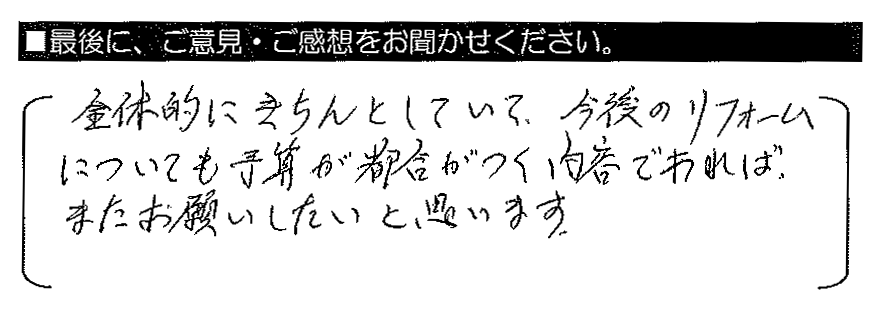 ■最後に、ご意見・ご感想をお聞かせください。
全体的にきちんとしていて、今後のリフォーム
についても予算が都合がつく内容であれば、
またお願いしたいと思います。